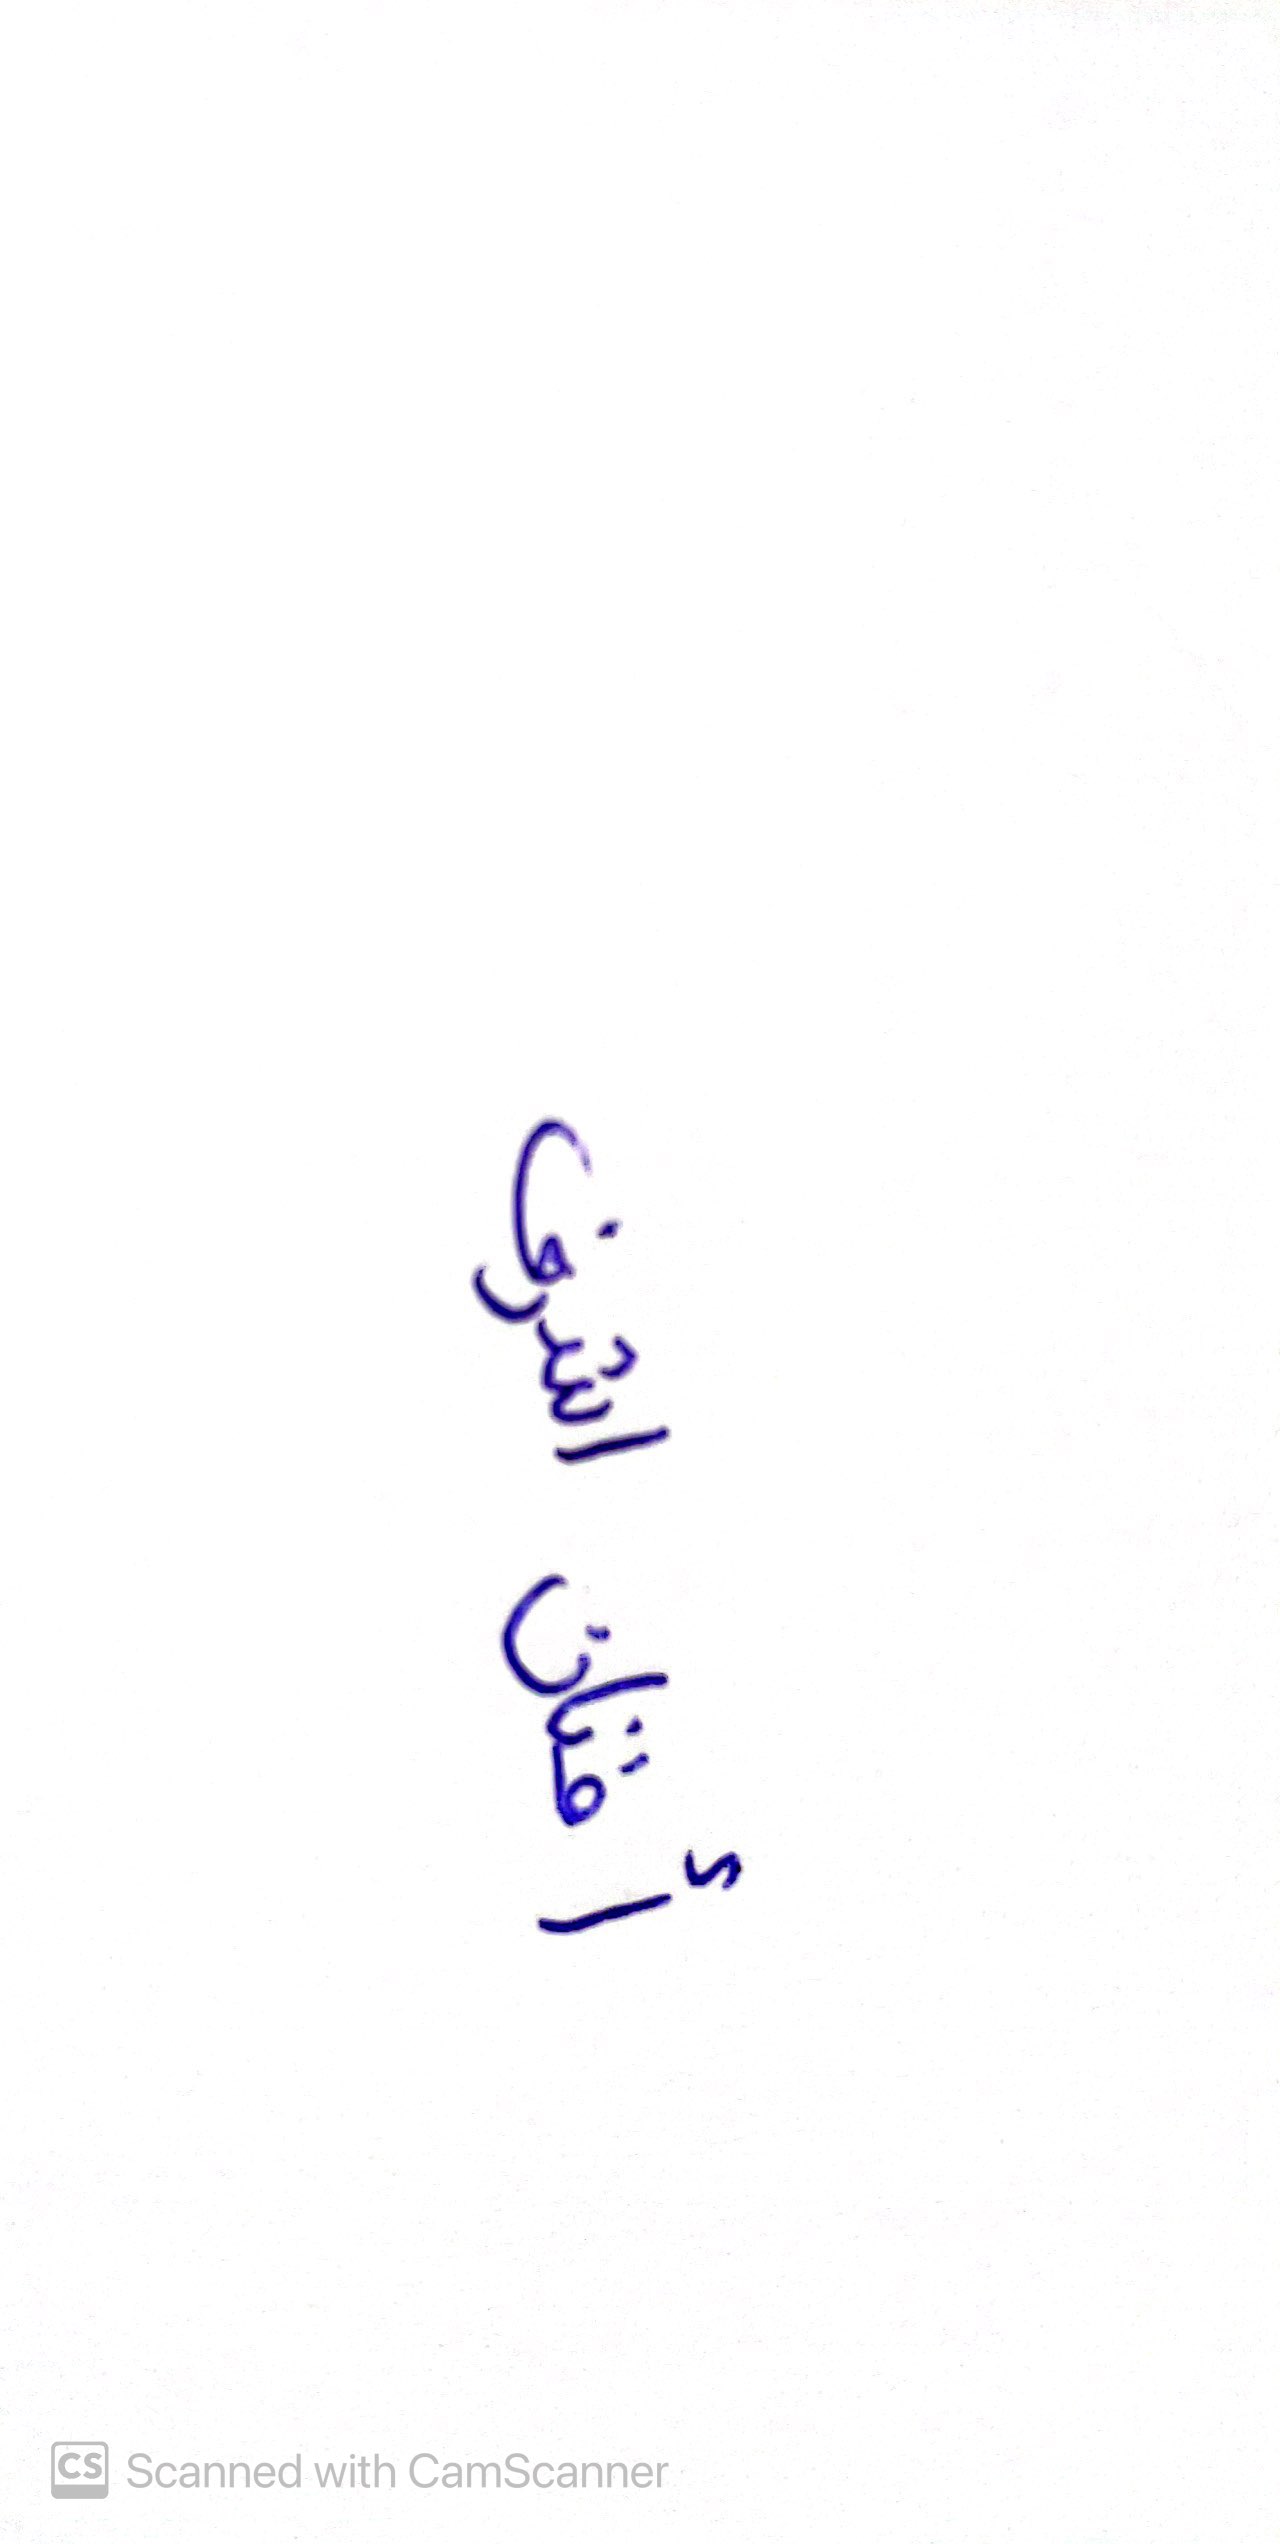 أفنان اشرف
CS Scanned with CamScanner